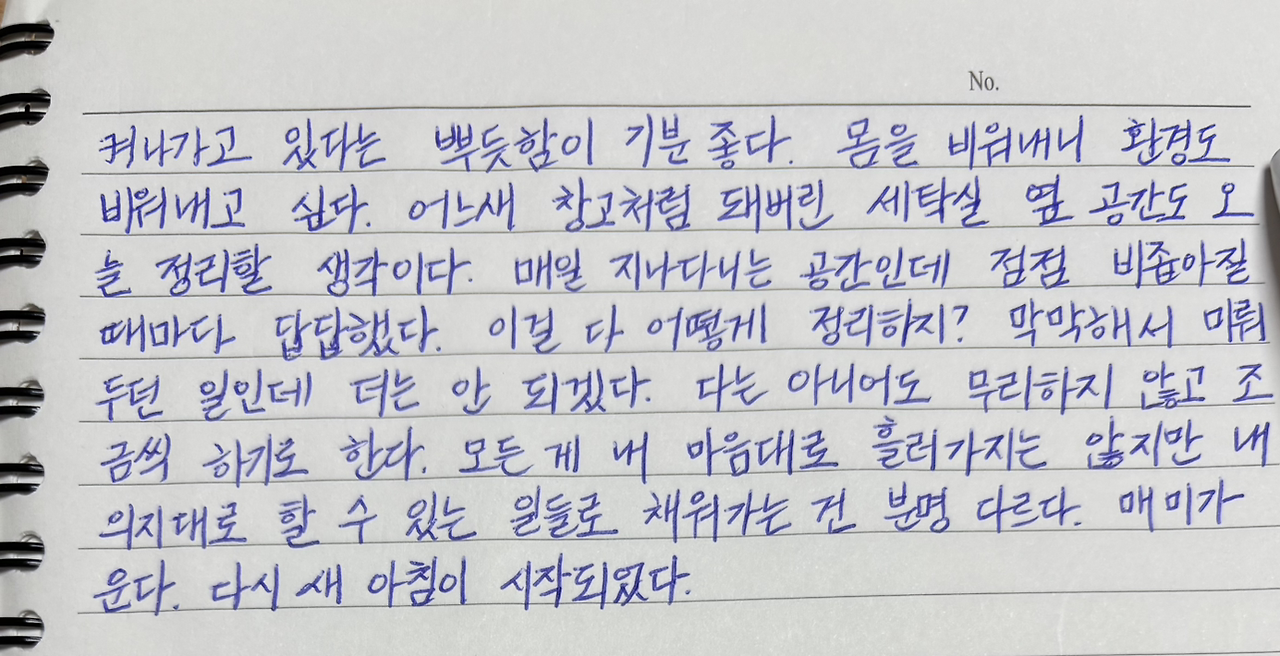 No.
켜나가고 있다는 뿌듯함이 기분 좋다. 몸을 비워내니 환경도
비워내고 싶다. 어느새 창고처럼 돼버린 세탁실 옆 공간도 오
늘 정리할 생각이다. 매일 지나다니는 공간인데 점점 비좁아질
때마다 답답했다. 이걸 다 어떻게 정리하지? 막막해서 미뤄
두던 일인데 더는 안 되겠다. 다는 아니어도 무리하지 않고 조
금씩 하기로 한다. 모든 게 내 마음대로 흘러가지는 않지만 내
의지대로 할 수 있는 일들로 채워가는 건 분명 다르다. 매미가
운다. 다시 새 아침이 시작되었다.